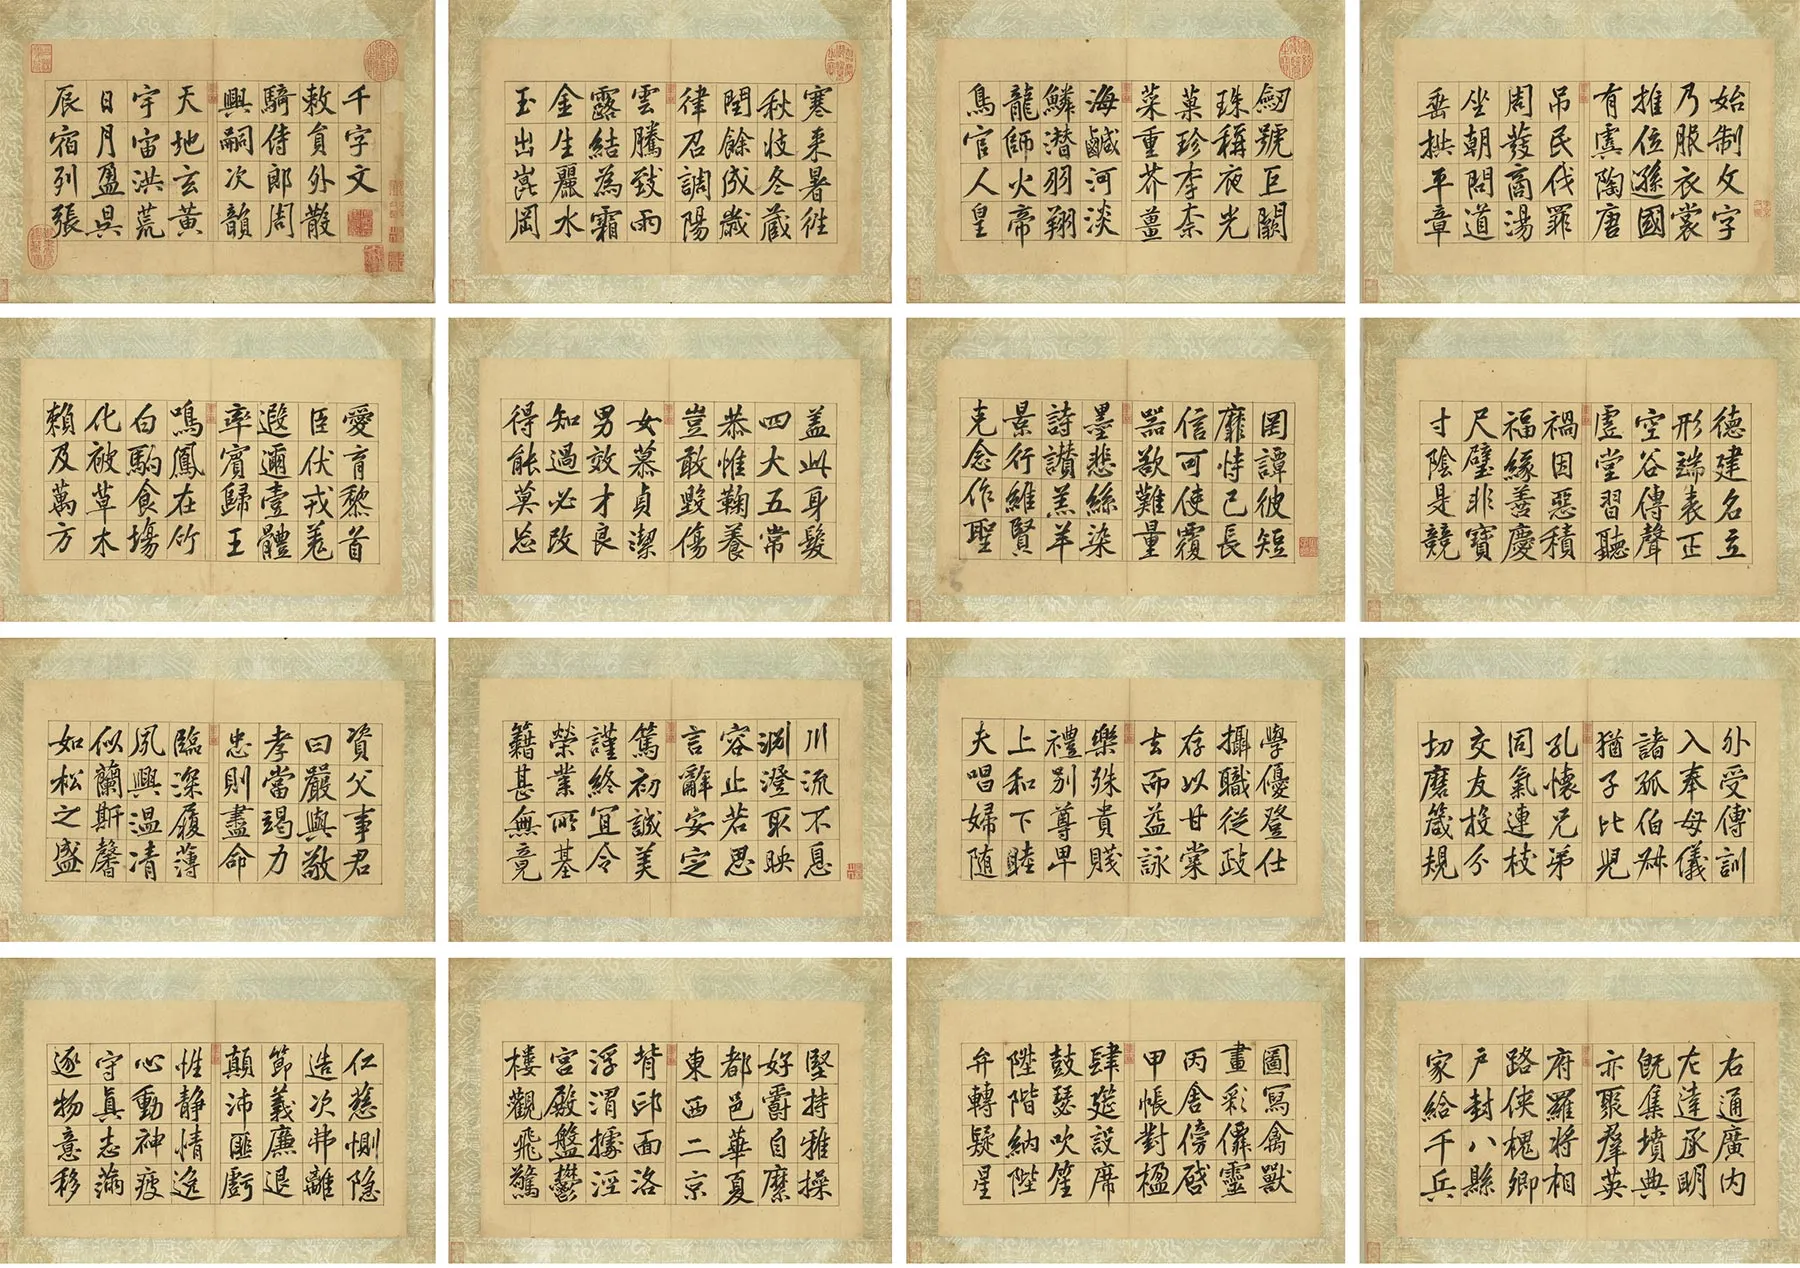 千字文
敕員外散
騎侍郎周
興嗣次韻
天地玄黃
宇宙洪荒
日月盈昃
辰宿列張
寒来暑往
秋收冬藏
閏餘成歲
律召調陽
雲騰致雨
露結為霜
金生麗水
玉出崑岡
劒號巨闕
珠稱夜光
菓珍李柰
菜重芥薑
海鹹河淡
鱗潛羽翔
龍師火帝
鳥官人皇
始制文字
乃服衣裳
推位遜國
有虞陶唐
吊民伐罪
周發商湯
坐朝問道
垂拱平章
愛育黎首
臣伏戎羌
遐邇壹體
率賓歸王
鳴鳳在竹
白駒食場
化被草木
賴及萬方
盖此身髮
四大五常
恭惟鞠養
豈敢毀傷
女慕貞潔
男效才良
知過必改
得能莫忘
罔談彼短
靡恃己長
信可使覆
器欲難量
墨悲絲染
詩讃羔羊
景行維賢
克念作聖
德建名立
形端表正
空谷傳聲
虛堂習聽
禍因惡積
福緣善慶
尺璧非寶
寸陰是競
資父事君
曰嚴與敬
孝當竭力
忠則盡命
臨深履薄
夙興溫凊
似蘭斯馨
如松之盛
川流不息
淵澄取映
容止若思
言辭安定
篤初誠美
謹終宜令
榮業所基
籍甚無竟
學優登仕
攝職從政
存以甘棠
去而益詠
樂殊貴賤
禮別尊卑
上和下睦
夫唱婦随
外受傅訓
入奉母儀
諸孤伯叔
猶子比兒
孔懷兄弟
同氣連枝
交友投分
切磨箴規
仁慈惻隐
造次弗離
節義廉退
顛沛匪虧
性静情逸
心動神疲
守真志滿
逐物意移
堅持雅操
好爵自縻
都邑華夏
東西二京
背邙面洛
浮渭據涇
宮殿盤鬱
樓觀飛驚
圖寫禽獸
畫彩僊靈
丙舍傍啓
甲帳對楹
肆筵設席
鼓瑟吹笙
陞階納陛
弁轉疑星
右通廣內
左達承明
既集墳典
亦聚羣英
府羅將相
路俠槐卿
戶封八縣
家給千兵